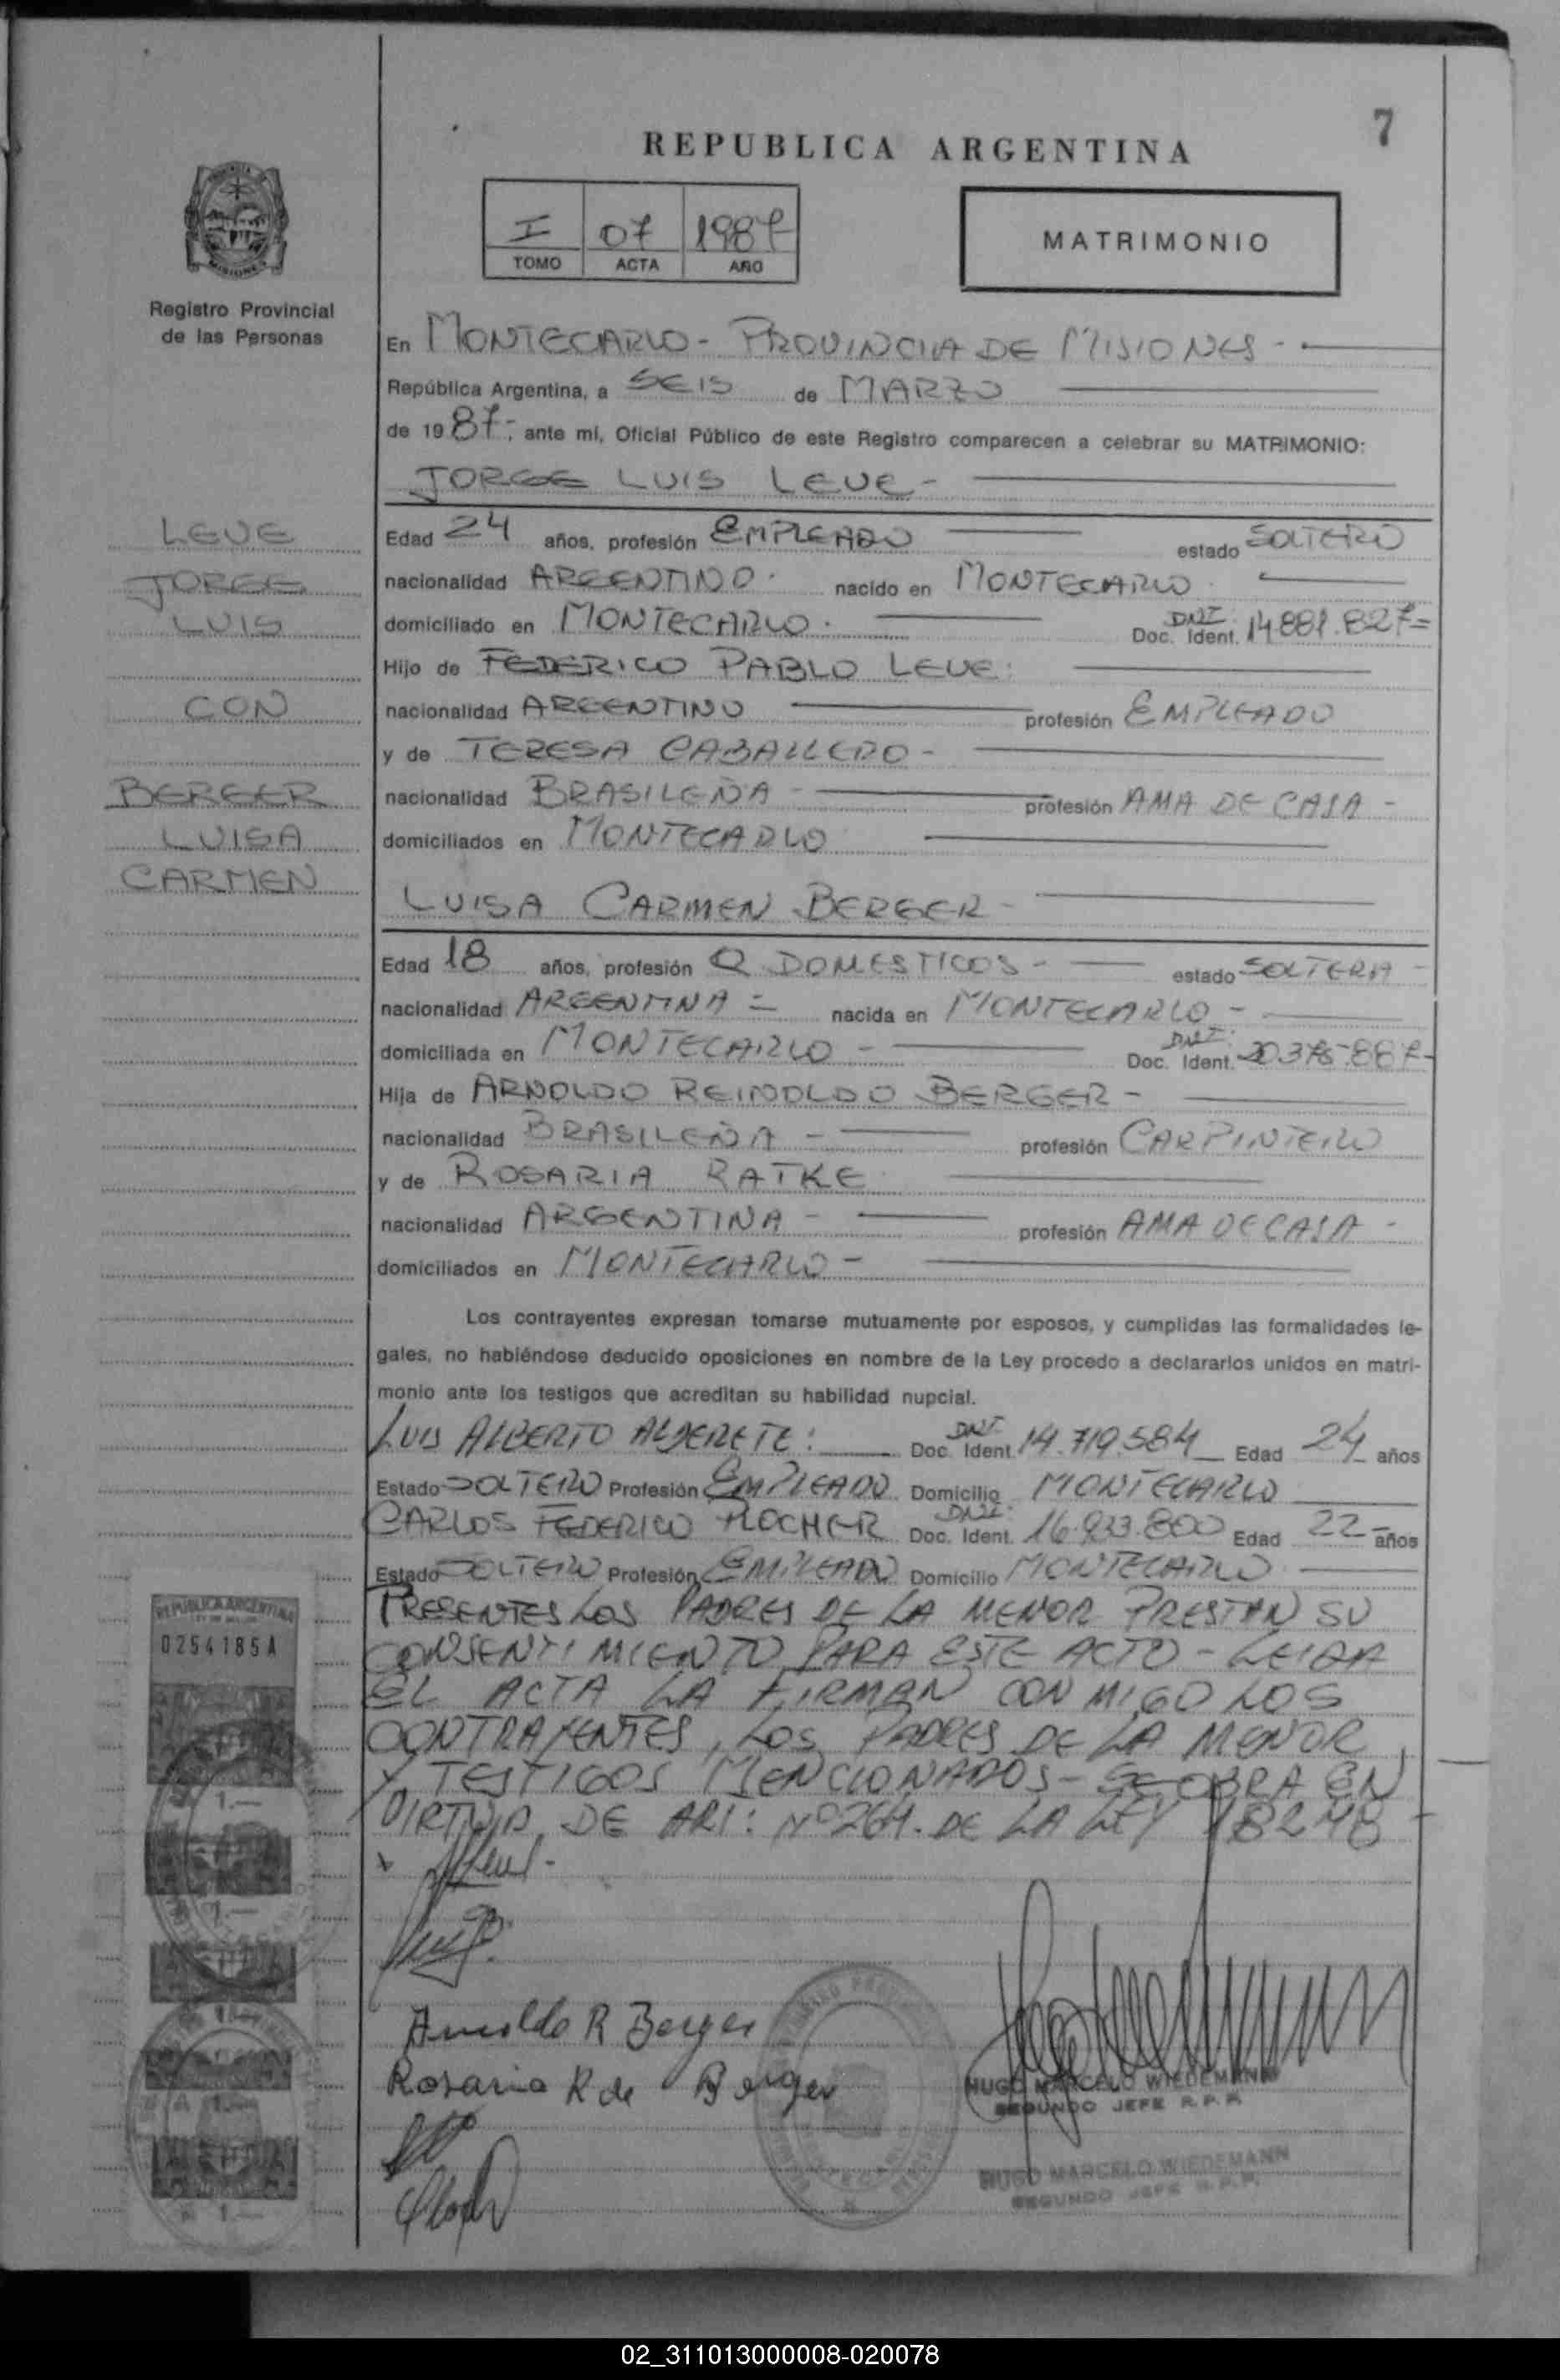 7
REPUBLICA ARGENTINA
I 07 1987
TOMO ACTA AÑO
MATRIMONIO
Registro Provincial
de las Personas
En MONTECARLO - PROVINCIA DE MISIONES -
República Argentina, a SEIS de MARZO
de 1987-, ante mi, Oficial Público de este Registro comparecen a celebrar su MATRIMONIO:
JORGE LUIS LEVE -
LEVE
JORGE
LUIS
CON
BERGER
LUISA
CARMEN
Edad 24 años, profesión EMPLEADO estado SOLTERO
nacionalidad ARGENTINO. nacido en MONTECARLO.
domiciliado en MONTECARLO. DNI. Doc. Ident. 14.881.827=
Hijo de FEDERICO PABLO LEVE.
nacionalidad ARGENTINO profesión EMPLEADO
y de TERESA CABALLERO -
nacionalidad BRASILEÑA - profesión AMA DE CASA -
domiciliados en MONTECARLO
LUISA CARMEN BERGER -
Edad 18 años, profesión Q DOMESTICOS - estado SOLTERA -
nacionalidad ARGENTINA = nacida en MONTECARLO -
domiciliada en MONTECARLO - DNI. Doc. Ident. 20.375.887-
Hija de ARNOLDO REINOLDO BERGER -
nacionalidad BRASILEÑA - profesión CARPINTERO
y de ROSARIA RATKE
nacionalidad ARGENTINA - profesión AMA DE CASA -
domiciliados en MONTECARLO -
Los contrayentes expresan tomarse mutuamente por esposos, y cumplidas las formalidades le-
gales, no habiéndose deducido oposiciones en nombre de la Ley procedo a declararlos unidos en matri-
monio ante los testigos que acreditan su habilidad nupcial.
LUIS ALBERTO ALDERETE: DNI. Doc. Ident. 14.719.584 Edad 24 años
Estado SOLTERO Profesión EMPLEADO Domicilio MONTECARLO
CARLOS FEDERICO DNI. Doc. Ident. 16.933.800 Edad 22 años
Estado SOLTERO Profesión EMPLEADO Domicilio MONTECARLO
PRESENTES LOS PADRES DE LA MENOR PRESTAN SU
CONSENTIMIENTO PARA ESTE ACTO - LEIDA
EL ACTA LA FIRMAN CON MIGO LOS
CONTRAYENTES, LOS PADRES DE LA MENOR
Y TESTIGOS MENCIONADOS - SE OBRA EN
VIRTUD DE ART: Nº 264. DE LA LEY 18248
REPUBLICA ARGENTINA
0254185A
1.—
1.—
1.—
1.—
Arnoldo R Berger
Rosaria R de Berger
HUGO MARCELO WIEDEMANN
SEGUNDO JEFE R.P.P.
HUGO MARCELO WIEDEMANN
SEGUNDO JEFE R.P.P.
02_311013000008-020078